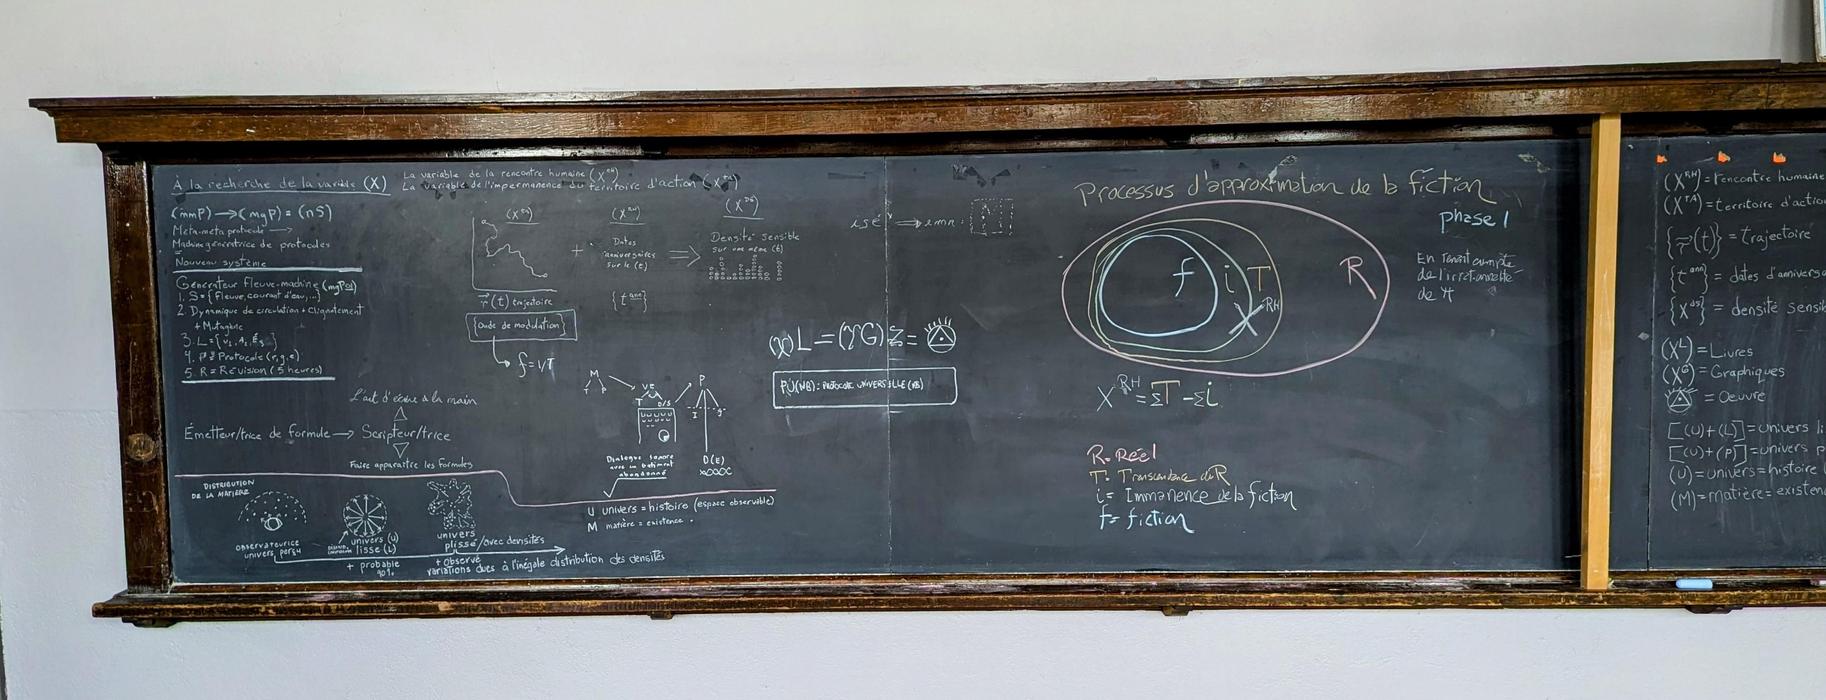 À la recherche de la variable (X)
La variable de la rencontre humaine (X^RH)
La variable de l'impermanence du territoire d'action (X^TA)
(mmP) → (mgP) = (nS)
Méta-meta protocole →
Machine génératrice de protocoles
=
Nouveau système
Générateur Fleuve-machine (mgP
1. S = {Fleuve, courant d'eau,...}
2. Dynamique de circulation + Clignotement
+ Mutagène
3. L = {
4. P = Protocole (r,g,e)
5. R = Révision (5 heures)
(X^RH)
(X^DS)
+
Dates
anniversaires
sur le (t)
⇒
Densité sensible
sur une même (t)
r(t) trajectoire
{t^ann}
{Onde de modulation}
f = 1/T
L'art d'écrire à la main
Émetteur/trice de formule → Scripteur/trice
Faire apparaître les formules
M
T P
D/S
P
I
Dialogue sonore
avec un bâtiment
abandonné
D(E)
DISTRIBUTION
DE LA MATIÈRE
observateurice
univers perçu
univers (U)
lisse (L)
+ probable
90%
univers
plissé/avec densités
+ observé
variations dues à l'inégale distribution des densités
U univers = histoire (espace observable)
M matière = existence
PU(NB): PROTOCOLE UNIVERSELLE (NB)
Processus d'approximation de la fiction
phase 1
f i T R
X^RH
En tenant compte
de l'irrationnalité
de
X^RH = ΣT - Σi
R = Réel
T = Transcendance du R
i = Immanence de la fiction
f = fiction
(X^RH) = rencontre humaine
(X^TA) = territoire d'action
{r(t)} = trajectoire
{t^ann} = dates d'annivers
{X^DS} = densité sensib
(X^L) = Livres
(X^G) = Graphiques
= Oeuvre
[(U)+(L)] = univers li
[(U)+(P)] = univers p
(U) = univers = histoire
(M) = matière = existen